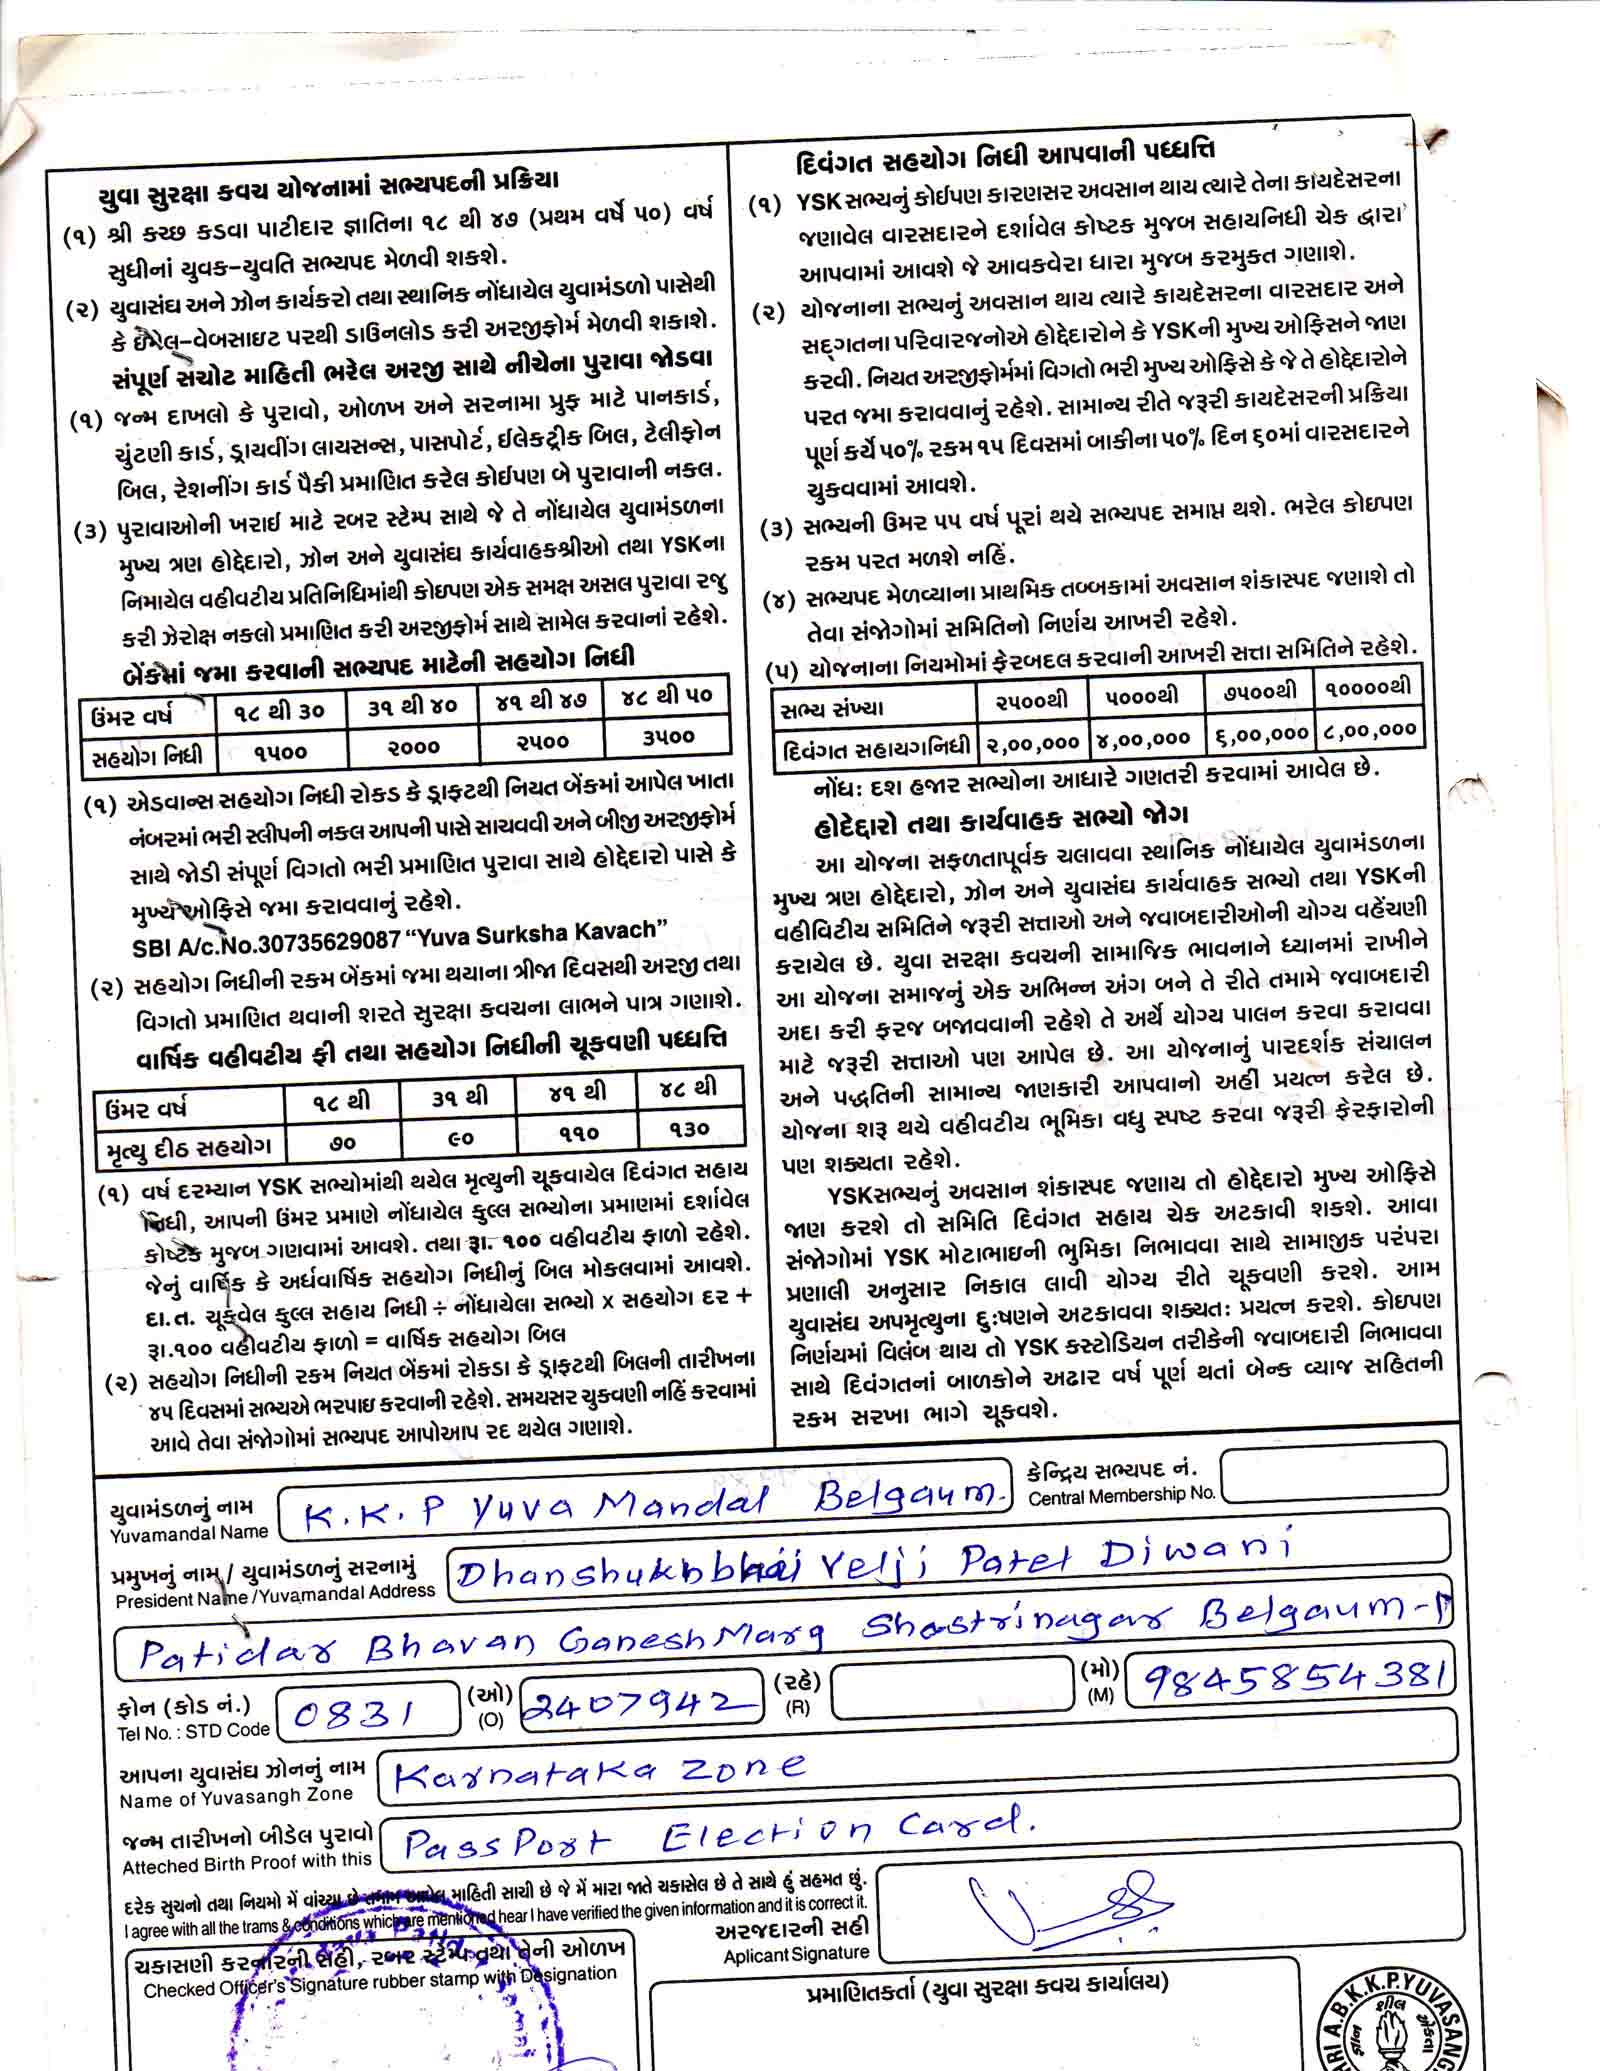 યુવા સુરક્ષા કવચ યોજનામાં સભ્યપદની પ્રક્રિયા
(૧) શ્રી કચ્છ કડવા પાટીદાર જ્ઞાતિના ૧૮ થી ૪૭ (પ્રથમ વર્ષે ૫૦) વર્ષ
સુધીનાં યુવક-યુવતિ સભ્યપદ મેળવી શકશે.
(૨) યુવાસંઘ અને ઝોન કાર્યકરો તથા સ્થાનિક નોંધાયેલ યુવામંડળો પાસેથી
કે ઈમેલ-વેબસાઇટ પરથી ડાઉનલોડ કરી અરજીફોર્મ મેળવી શકાશે.
સંપૂર્ણ સચોટ માહિતી ભરેલ અરજી સાથે નીચેના પુરાવા જોડવા
(૧) જન્મ દાખલો કે પુરાવો, ઓળખ અને સરનામા પ્રુફ માટે પાનકાર્ડ,
ચુંટણી કાર્ડ, ડ્રાયવીંગ લાયસન્સ, પાસપોર્ટ, ઈલેક્ટ્રીક બિલ, ટેલીફોન
બિલ, રેશનીંગ કાર્ડ પૈકી પ્રમાણિત કરેલ કોઈપણ બે પુરાવાની નકલ.
(૩) પુરાવાઓની ખરાઈ માટે રબર સ્ટેમ્પ સાથે જે તે નોંધાયેલ યુવામંડળના
મુખ્ય ત્રણ હોદ્દેદારો, ઝોન અને યુવાસંઘ કાર્યવાહકશ્રીઓ તથા YSKના
નિમાયેલ વહીવટીય પ્રતિનિધિમાંથી કોઇપણ એક સમક્ષ અસલ પુરાવા રજુ
કરી ઝેરોક્ષ નકલો પ્રમાણિત કરી અરજીફોર્મ સાથે સામેલ કરવાનાં રહેશે.
બેંકમાં જમા કરવાની સભ્યપદ માટેની સહયોગ નિધી
ઉંમર વર્ષ ૧૮ થી ૩૦ ૩૧ થી ૪૦ ૪૧ થી ૪૭ ૪૮ થી ૫૦
સહયોગ નિધી ૧૫૦૦ ૨૦૦૦ ૨૫૦૦ ૩૫૦૦
(૧) એડવાન્સ સહયોગ નિધી રોકડ કે ડ્રાફ્ટથી નિયત બેંકમાં આપેલ ખાતા
નંબરમાં ભરી સ્લીપની નકલ આપની પાસે સાચવવી અને બીજી અરજીફોર્મ
સાથે જોડી સંપૂર્ણ વિગતો ભરી પ્રમાણિત પુરાવા સાથે હોદ્દેદારો પાસે કે
મુખ્ય ઓફિસે જમા કરાવવાનું રહેશે.
SBI A/c.No.30735629087 "Yuva Surksha Kavach"
(૨) સહયોગ નિધીની રકમ બેંકમાં જમા થયાના ત્રીજા દિવસથી અરજી તથા
વિગતો પ્રમાણિત થવાની શરતે સુરક્ષા કવચના લાભને પાત્ર ગણાશે.
વાર્ષિક વહીવટીય ફી તથા સહયોગ નિધીની ચૂકવણી પધ્ધતિ
ઉંમર વર્ષ ૧૮ થી ૩૧ થી ૪૧ થી ૪૮ થી
મૃત્યુ દીઠ સહયોગ ૭૦ ૯૦ ૧૧૦ ૧૩૦
(૧) વર્ષ દરમ્યાન YSK સભ્યોમાંથી થયેલ મૃત્યુની ચૂકવાયેલ દિવંગત સહાય
નિધી, આપની ઉંમર પ્રમાણે નોંધાયેલ કુલ્લ સભ્યોના પ્રમાણમાં દર્શાવેલ
કોષ્ટક મુજબ ગણવામાં આવશે. તથા રૂા. ૧૦૦ વહીવટીય ફાળો રહેશે.
જેનું વાર્ષિક કે અર્ધવાર્ષિક સહયોગ નિધીનું બિલ મોકલવામાં આવશે.
દા.ત. ચૂકવેલ કુલ્લ સહાય નિધી ÷ નોંધાયેલા સભ્યો x સહયોગ દર +
રૂા.૧૦૦ વહીવટીય ફાળો = વાર્ષિક સહયોગ બિલ
(૨) સહયોગ નિધીની રકમ નિયત બેંકમાં રોકડા કે ડ્રાફટથી બિલની તારીખના
૪૫ દિવસમાં સભ્યએ ભરપાઇ કરવાની રહેશે. સમયસર ચુકવણી નહિં કરવામાં
આવે તેવા સંજોગોમાં સભ્યપદ આપોઆપ રદ થયેલ ગણાશે.
દિવંગત સહયોગ નિધી આપવાની પધ્ધત્તિ
(૧) YSK સભ્યનું કોઈપણ કારણસર અવસાન થાય ત્યારે તેના કાયદેસરના
જણાવેલ વારસદારને દર્શાવેલ કોષ્ટક મુજબ સહાયનિધી ચેક દ્વારા
આપવામાં આવશે જે આવકવેરા ધારા મુજબ કરમુક્ત ગણાશે.
(૨) યોજનાના સભ્યનું અવસાન થાય ત્યારે કાયદેસરના વારસદાર અને
સદ્‌ગતના પરિવારજનોએ હોદ્દેદારોને કે YSKની મુખ્ય ઓફિસને જાણ
કરવી. નિયત અરજીફોર્મમાં વિગતો ભરી મુખ્ય ઓફિસે કે જે તે હોદ્દેદારોને
પરત જમા કરાવવાનું રહેશે. સામાન્ય રીતે જરૂરી કાયદેસરની પ્રક્રિયા
પૂર્ણ કર્યે ૫૦% રકમ ૧૫ દિવસમાં બાકીના ૫૦% દિન ૬૦માં વારસદારને
ચુકવવામાં આવશે.
(૩) સભ્યની ઉમર ૫૫ વર્ષ પૂરાં થયે સભ્યપદ સમાપ્ત થશે. ભરેલ કોઇપણ
રકમ પરત મળશે નહિં.
(૪) સભ્યપદ મેળવ્યાના પ્રાથમિક તબ્બકામાં અવસાન શંકાસ્પદ જણાશે તો
તેવા સંજોગોમાં સમિતિનો નિર્ણય આખરી રહેશે.
(૫) યોજનાના નિયમોમાં ફેરબદલ કરવાની આખરી સત્તા સમિતિને રહેશે.
સભ્ય સંખ્યા ૨૫૦૦થી ૫૦૦૦થી ૭૫૦૦થી ૧૦૦૦૦થી
દિવંગત સહાયગનિધી ૨,૦૦,૦૦૦ ૪,૦૦,૦૦૦ ૬,૦૦,૦૦૦ ૮,૦૦,૦૦૦
નોંધઃ દશ હજાર સભ્યોના આધારે ગણતરી કરવામાં આવેલ છે.
હોદેદ્દારો તથા કાર્યવાહક સભ્યો જોગ
આ યોજના સફળતાપૂર્વક ચલાવવા સ્થાનિક નોંધાયેલ યુવામંડળના
મુખ્ય ત્રણ હોદ્દેદારો, ઝોન અને યુવાસંઘ કાર્યવાહક સભ્યો તથા YSKની
વહીવિટીય સમિતિને જરૂરી સત્તાઓ અને જવાબદારીઓની યોગ્ય વહેંચણી
કરાયેલ છે. યુવા સરક્ષા કવચની સામાજિક ભાવનાને ધ્યાનમાં રાખીને
આ યોજના સમાજનું એક અભિન્ન અંગ બને તે રીતે તમામે જવાબદારી
અદા કરી ફરજ બજાવવાની રહેશે તે અર્થે યોગ્ય પાલન કરવા કરાવવા
માટે જરૂરી સત્તાઓ પણ આપેલ છે. આ યોજનાનું પારદર્શક સંચાલન
અને પદ્ધતિની સામાન્ય જાણકારી આપવાનો અહીં પ્રયત્ન કરેલ છે.
યોજના શરૂ થયે વહીવટીય ભૂમિકા વધુ સ્પષ્ટ કરવા જરૂરી ફેરફારોની
પણ શક્યતા રહેશે.
YSKસભ્યનું અવસાન શંકાસ્પદ જણાય તો હોદ્દેદારો મુખ્ય ઓફિસે
જાણ કરશે તો સમિતિ દિવંગત સહાય ચેક અટકાવી શકશે. આવા
સંજોગોમાં YSK મોટાભાઇની ભુમિકા નિભાવવા સાથે સામાજીક પરંપરા
પ્રણાલી અનુસાર નિકાલ લાવી યોગ્ય રીતે ચૂકવણી કરશે. આમ
યુવાસંઘ અપમૃત્યુના દુઃષણને અટકાવવા શક્યતઃ પ્રયત્ન કરશે. કોઇપણ
નિર્ણયમાં વિલંબ થાય તો YSK કસ્ટોડિયન તરીકેની જવાબદારી નિભાવવા
સાથે દિવંગતનાં બાળકોને અઢાર વર્ષ પૂર્ણ થતાં બેન્ક વ્યાજ સહિતની
રકમ સરખા ભાગે ચૂકવશે.
યુવામંડળનું નામ K.K.P Yuva Mandal Belgaum. કેન્દ્રિય સભ્યપદ નં.
Yuvamandal Name Central Membership No.
પ્રમુખનું નામ / યુવામંડળનું સરનામું Dhanshukhbhai Velji Patel Diwani
President Name/Yuvamandal Address
Patidar Bhavan Ganesh Marg Shastrinagar Belgaum-
ફોન (કોડ નં.) 0831 (ઓ) 2407942 (રહે) (મો) 9845854381
Tel No. : STD Code (O) (R) (M)
આપના યુવાસંઘ ઝોનનું નામ Karnataka zone
Name of Yuvasangh Zone
જન્મ તારીખનો બીડેલ પુરાવો PassPort Election Card.
Atteched Birth Proof with this
દરેક સુચનો તથા નિયમો મેં વાંચ્યા છે તમામ આપેલ માહિતી સાચી છે જે મેં મારા જાતે ચકાસેલ છે તે સાથે હું સહમત છું.
I agree with all the trams & conditions which are mentioned hear I have verified the given information and it is correct it.
અરજદારની સહી
Aplicant Signature
ચકાસણી કરનારની સહી, રબર સ્ટેમ્પ તથા તેની ઓળખ
Checked Officer's Signature rubber stamp with Designation
પ્રમાણિતકર્તા (યુવા સુરક્ષા કવચ કાર્યાલય)
A.B.K.K.P.YUVASANG
શીલ
એકતા